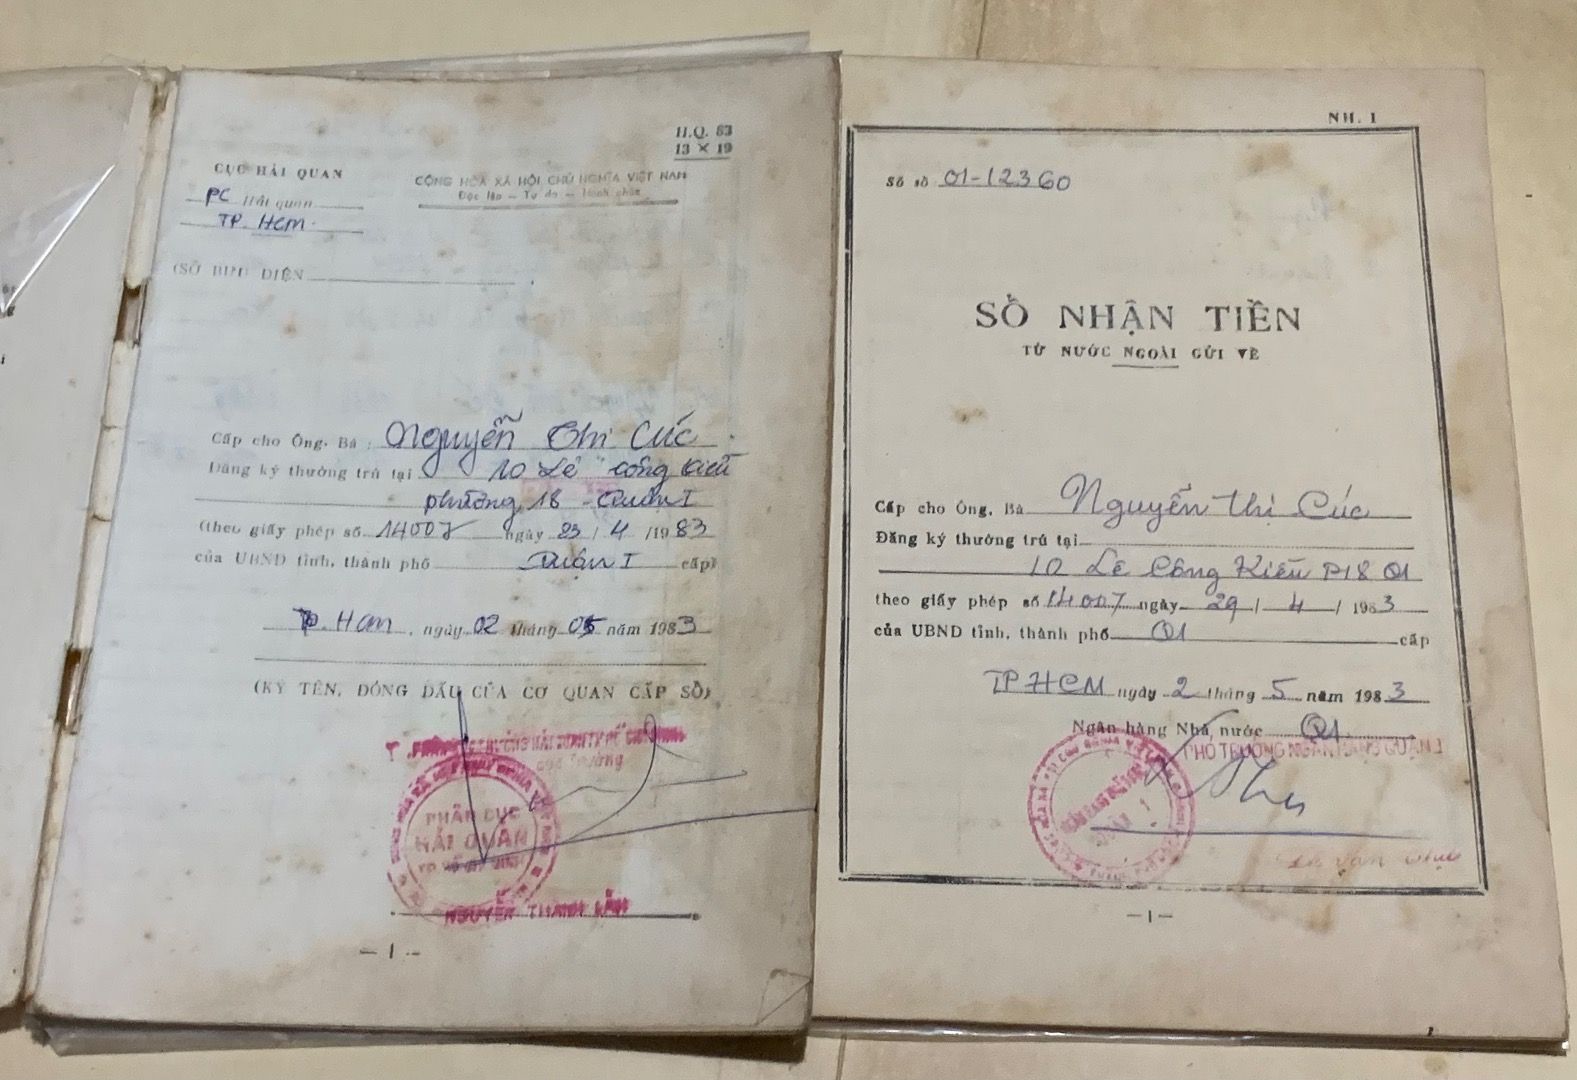 H.Q. 83
13 × 19
CỤC HẢI QUAN
PC Hải quan
TP. HCM.
CỘNG HÒA XÃ HỘI CHỦ NGHĨA VIỆT NAM
Độc lập — Tự do — Hạnh phúc
(SỞ BƯU ĐIỆN
Cấp cho Ông, Bà : Nguyễn Thị Cúc
Đăng ký thường trú tại 10 Lê Công Kiều
phường 18 - Quận I
(theo giấy phép số 14007 ngày 23 / 4 /1983
của UBND tỉnh, thành phố Quận I cấp)
TP. HCM, ngày 02 tháng 05 năm 1983
(KÝ TÊN, ĐÓNG DẤU CỦA CƠ QUAN CẤP SỔ)
PHÂN CỤC
HẢI QUAN
NGUYỄN THANH VÂN
— 1 —
NH. 1
Số sổ 01-12360
SỔ NHẬN TIỀN
TỪ NƯỚC NGOÀI GỬI VỀ
Cấp cho Ông, Bà Nguyễn Thị Cúc
Đăng ký thường trú tại
10 Lê Công Kiều P18 Q1
theo giấy phép số 14007 ngày 29 / 4 / 1983
của UBND tỉnh, thành phố Q1 cấp
TP HCM ngày 2 tháng 5 năm 1983
Ngân hàng Nhà nước Q1
PHÓ TRƯỞNG NGÂN HÀNG QUẬN 1
—1—